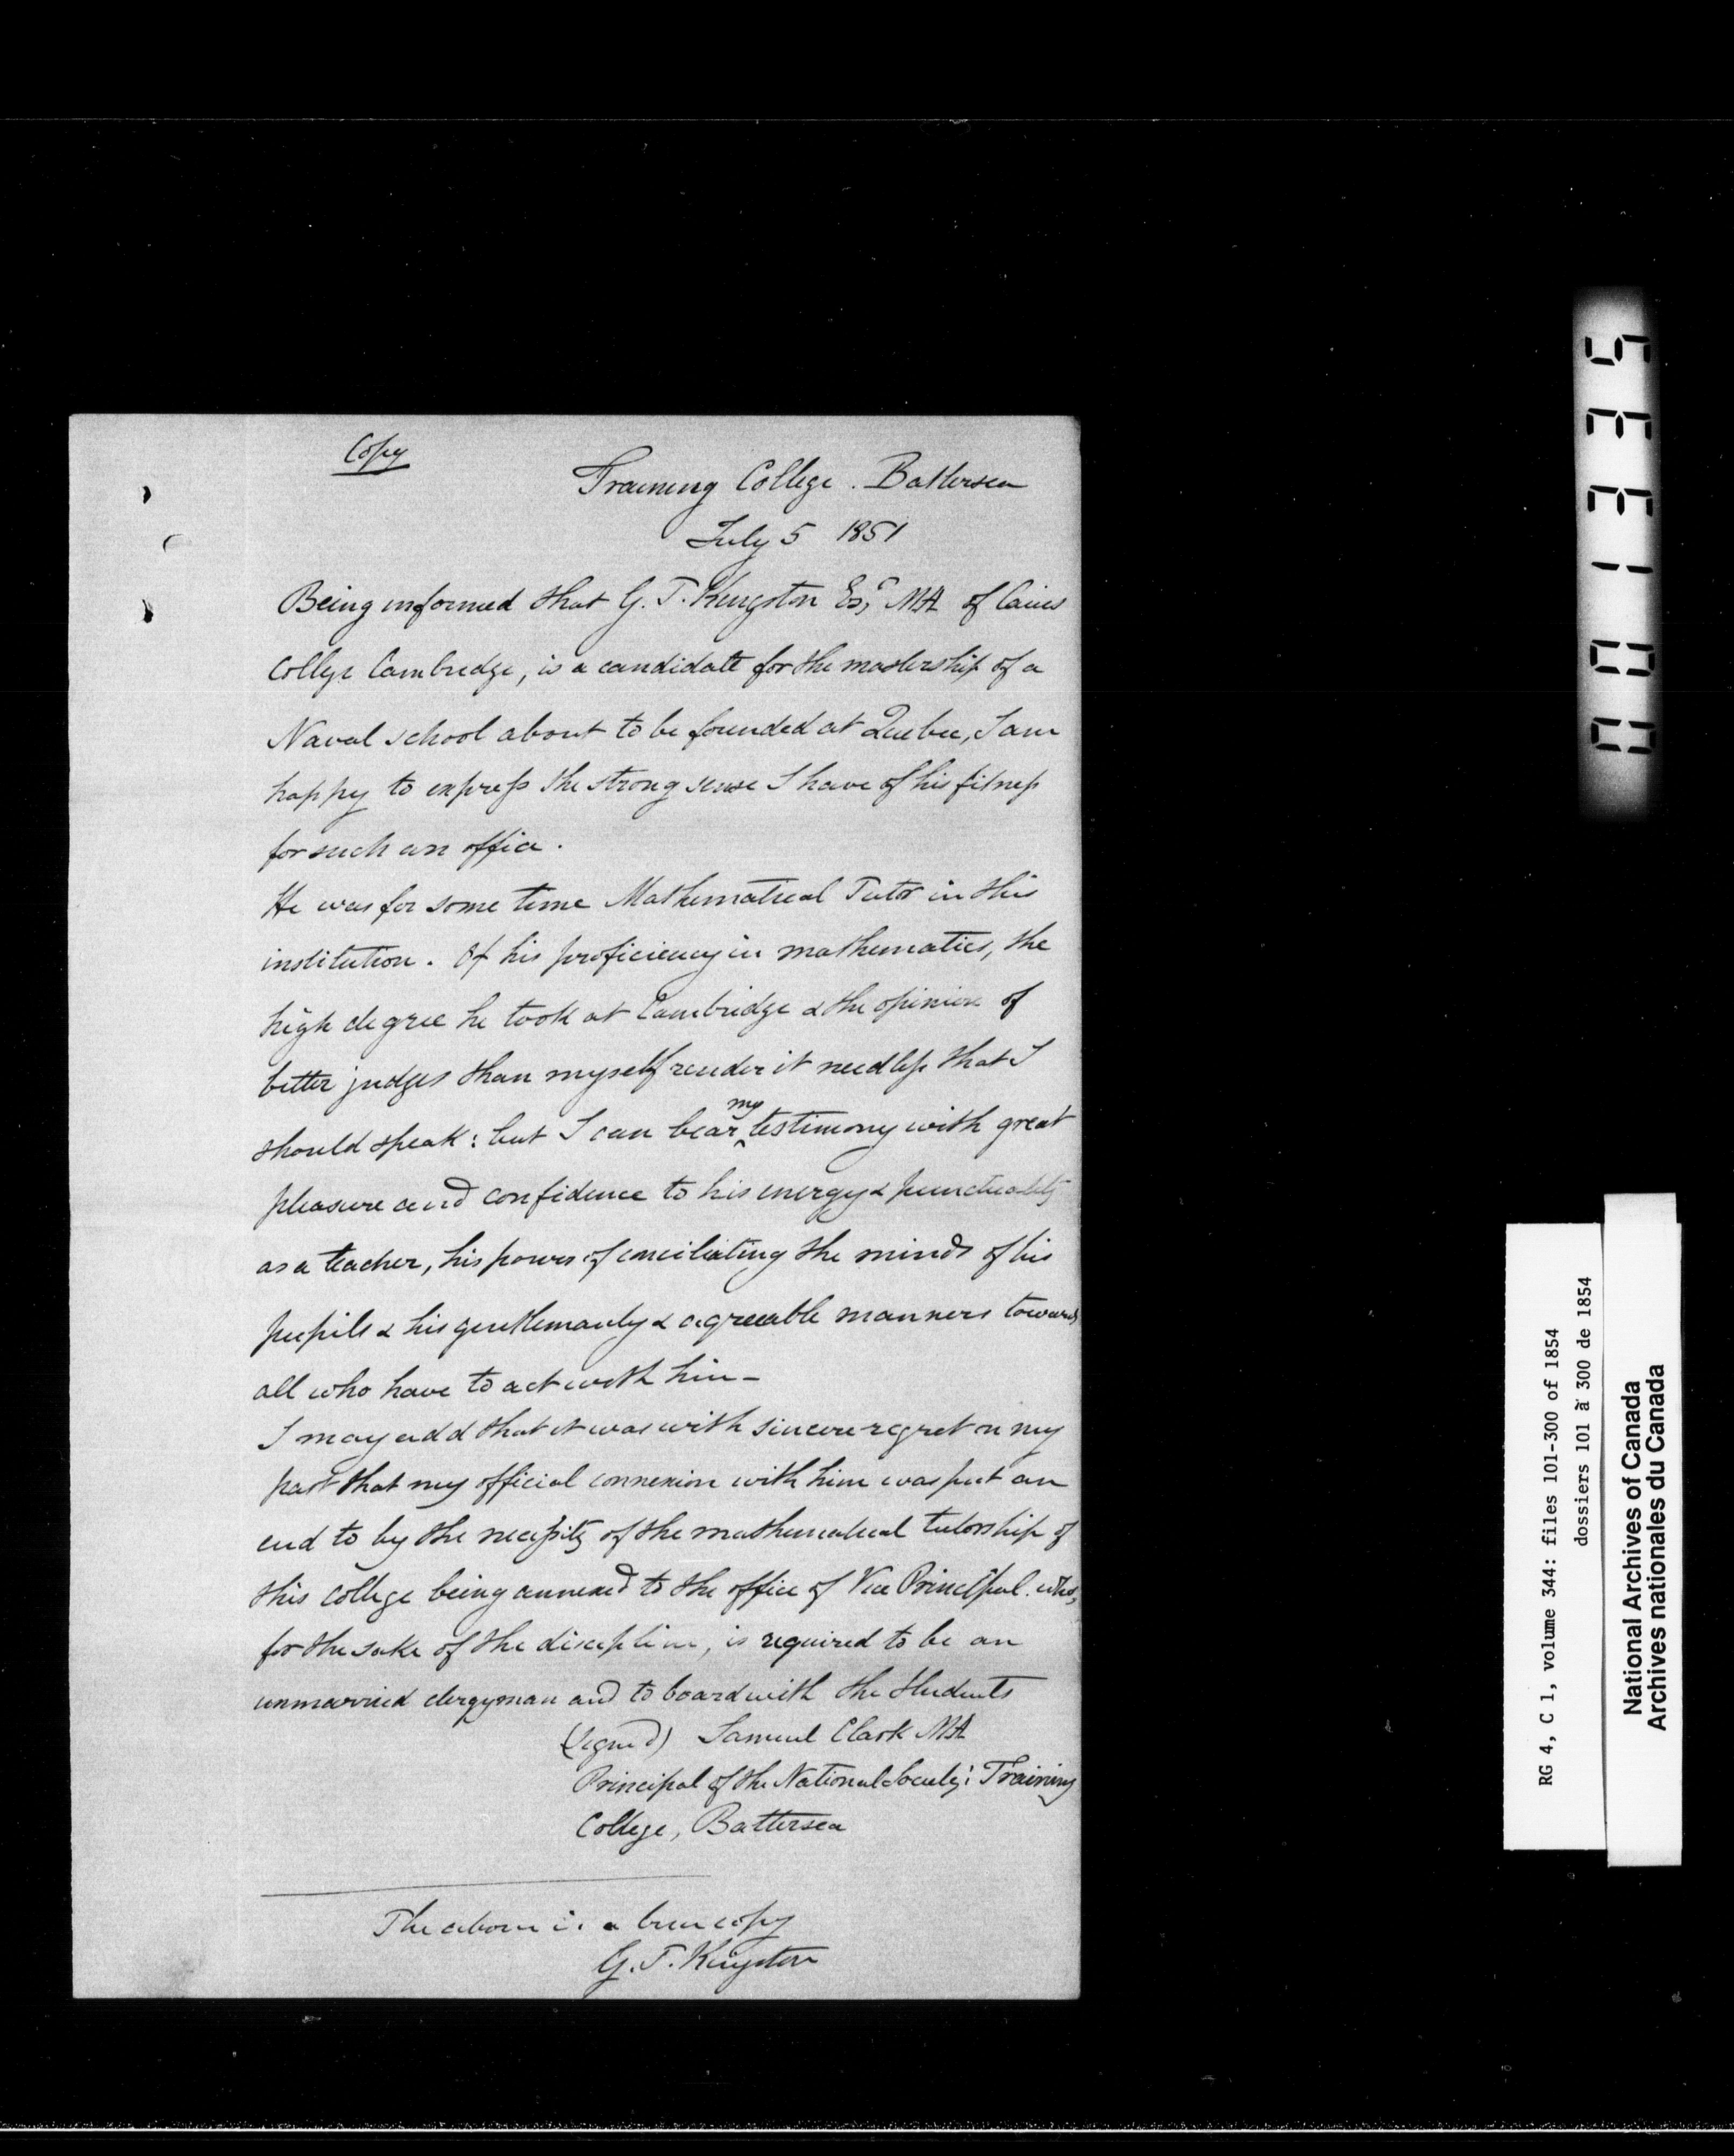 Copy
Training College. Battersea
July 5 1851
Being informed that G. T. Kingston Esqr MA of Caius
College Cambridge, is a candidate for the mastership of a
Naval school about to be founded at Quebec, I am
happy to express the strong sense I have of his fitness
for such an office.
He was for some time Mathematical Tutor in this
institution. Of his proficiency in mathematics, the
high degree he took at Cambridge & the opinion of
better judges than myself render it needless that I
should speak: but I can bear my testimony with great
pleasure and confidence to his energy & punctuality
as a teacher, his power of conciliating the minds of his
pupils & his gentlemanly & agreeable manners towards
all who have to act with him –
I may add that it was with sincere regret on my
part that my official connexion with him was put an
end to by the necessity of the mathematical tutorship of
this college being annexed to the office of Vice Principal. who,
for the sake of the discipline, is required to be an
unmarried clergyman and to board with the students
(signed) Samuel Clark MA
Principal of the National Society's Training
College, Battersea
The above is a true copy
G. T. Kingston
001335
RG 4, C 1, volume 344: files 101-300 of 1854
dossiers 101 à 300 de 1854
National Archives of Canada
Archives nationales du Canada